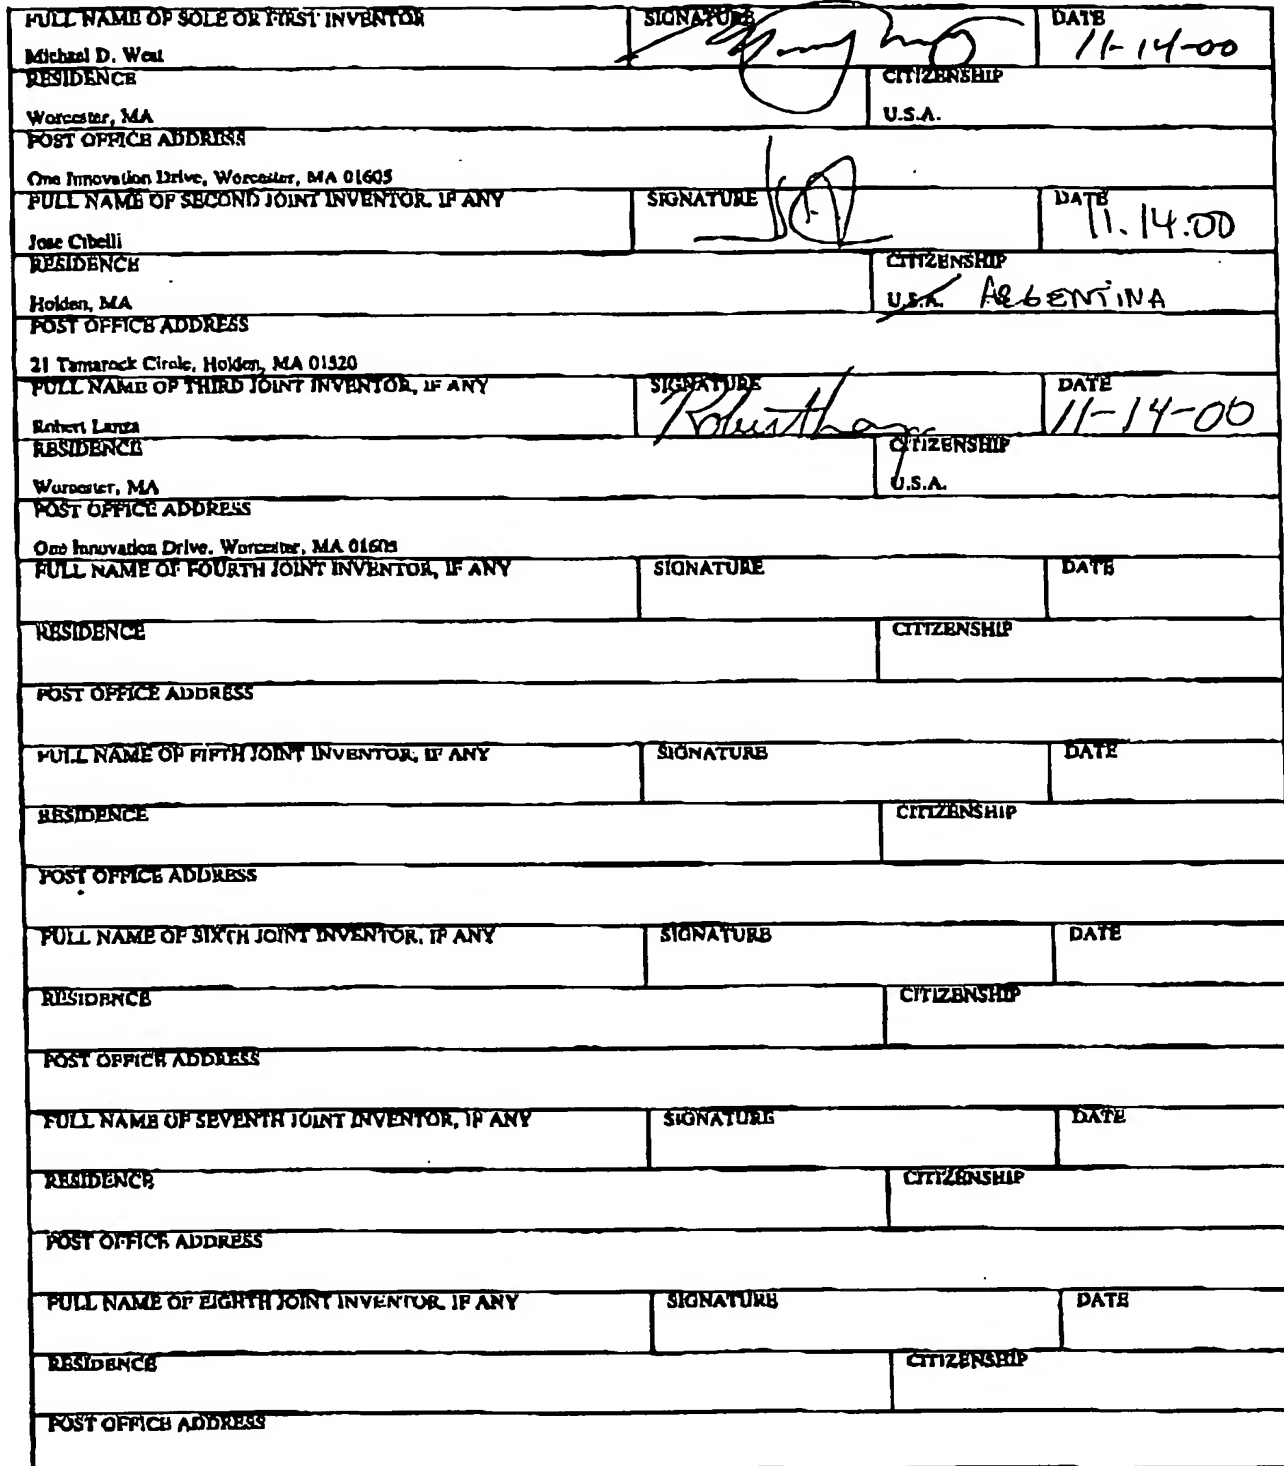 FULL NAME OF SOLE OR FIRST INVENTOR SIGNATURE DATE
Michael D. West 11-14-00
RESIDENCE CITIZENSHIP
Worcester, MA U.S.A.
POST OFFICE ADDRESS
One Innovation Drive, Worcester, MA 01605
FULL NAME OF SECOND JOINT INVENTOR, IF ANY SIGNATURE DATE
Jose Cibelli 11.14.00
RESIDENCE CITIZENSHIP
Holden, MA U.S.A. ARGENTINA
POST OFFICE ADDRESS
21 Tamarock Circle, Holden, MA 01520
FULL NAME OF THIRD JOINT INVENTOR, IF ANY SIGNATURE DATE
Robert Lanza Robert Lanza 11-14-00
RESIDENCE CITIZENSHIP
Worcester, MA U.S.A.
POST OFFICE ADDRESS
One Innovation Drive, Worcester, MA 01605
FULL NAME OF FOURTH JOINT INVENTOR, IF ANY SIGNATURE DATE
RESIDENCE CITIZENSHIP
POST OFFICE ADDRESS
FULL NAME OF FIFTH JOINT INVENTOR, IF ANY SIGNATURE DATE
RESIDENCE CITIZENSHIP
POST OFFICE ADDRESS
FULL NAME OF SIXTH JOINT INVENTOR, IF ANY SIGNATURE DATE
RESIDENCE CITIZENSHIP
POST OFFICE ADDRESS
FULL NAME OF SEVENTH JOINT INVENTOR, IF ANY SIGNATURE DATE
RESIDENCE CITIZENSHIP
POST OFFICE ADDRESS
FULL NAME OF EIGHTH JOINT INVENTOR, IF ANY SIGNATURE DATE
RESIDENCE CITIZENSHIP
POST OFFICE ADDRESS